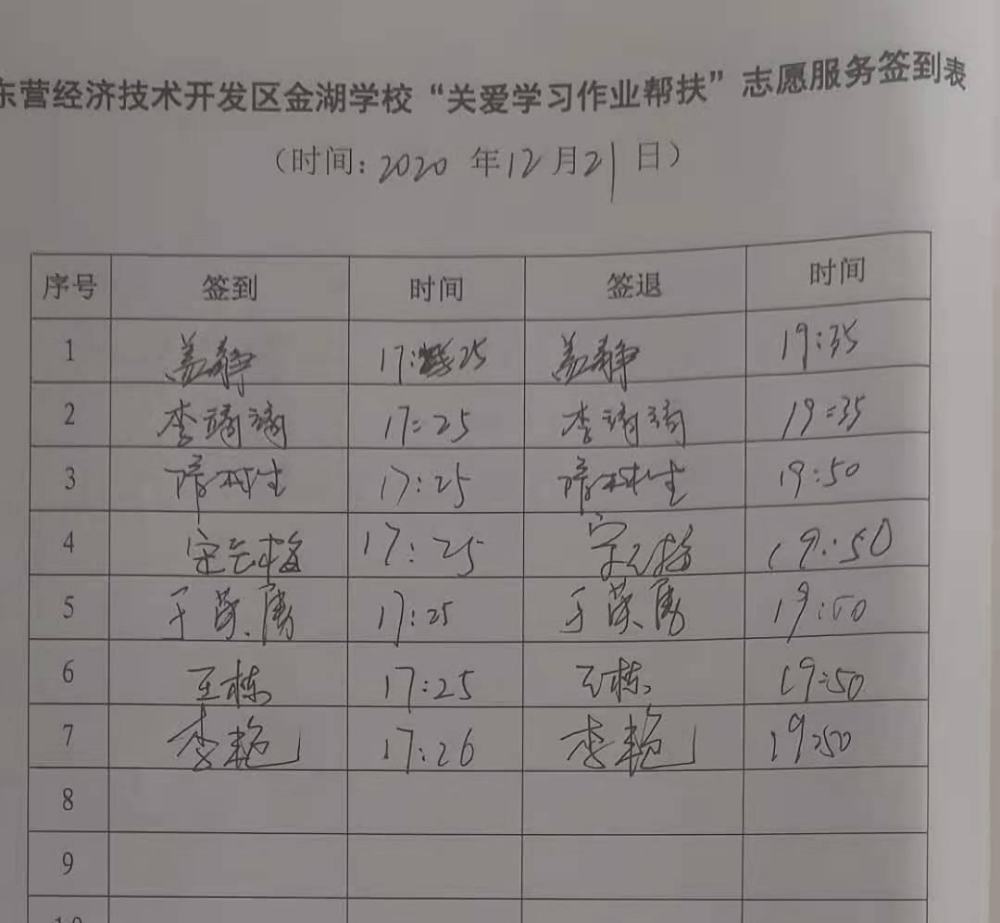 东营经济技术开发区金湖学校“关爱学习作业帮扶”志愿服务签到表
(时间:2020年12月21日)
序号 签到 时间 签退 时间
1 盖静 17:25 盖静 19:35
2 李琦琦 17:25 李琦琦 19:35
3 17:25 19:50
4 17:25 19:50
5 17:25 19:50
6 王栋 17:25 王栋 19:50
7 李艳 17:26 李艳 19:50
8
9
10